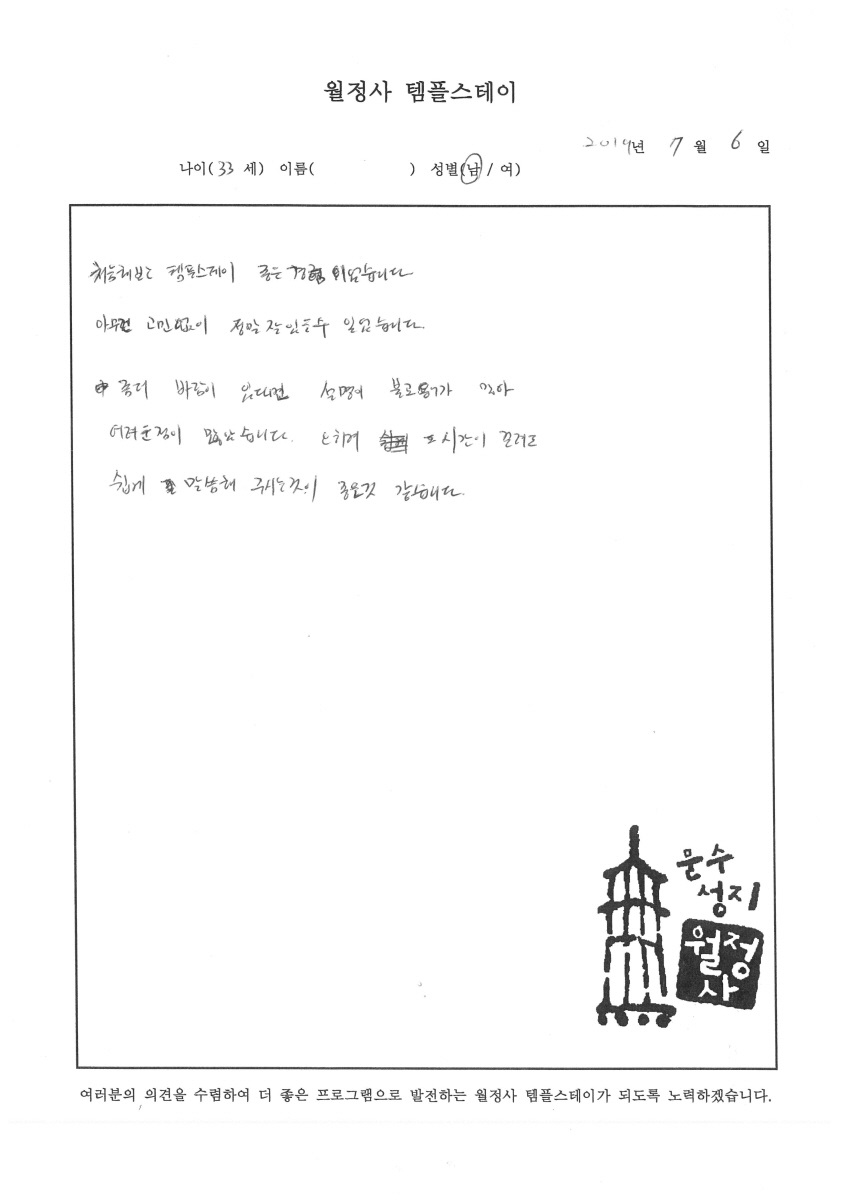 월정사 템플스테이
2019년 7월 6일
나이(33 세) 이름( ) 성별(남/여)
처음해보는 템플스테이 좋은 경험 이었습니다
아무런 고민없이 정말 잘 있을수 있었습니다.
좀더 바람이 있다면 설명에 불교용어가 많아
어려운점이 많았습니다. 시간이
쉽게 말씀해 주시는것이 좋은것 같습니다.
문수
성지
월정
사
여러분의 의견을 수렴하여 더 좋은 프로그램으로 발전하는 월정사 템플스테이가 되도록 노력하겠습니다.